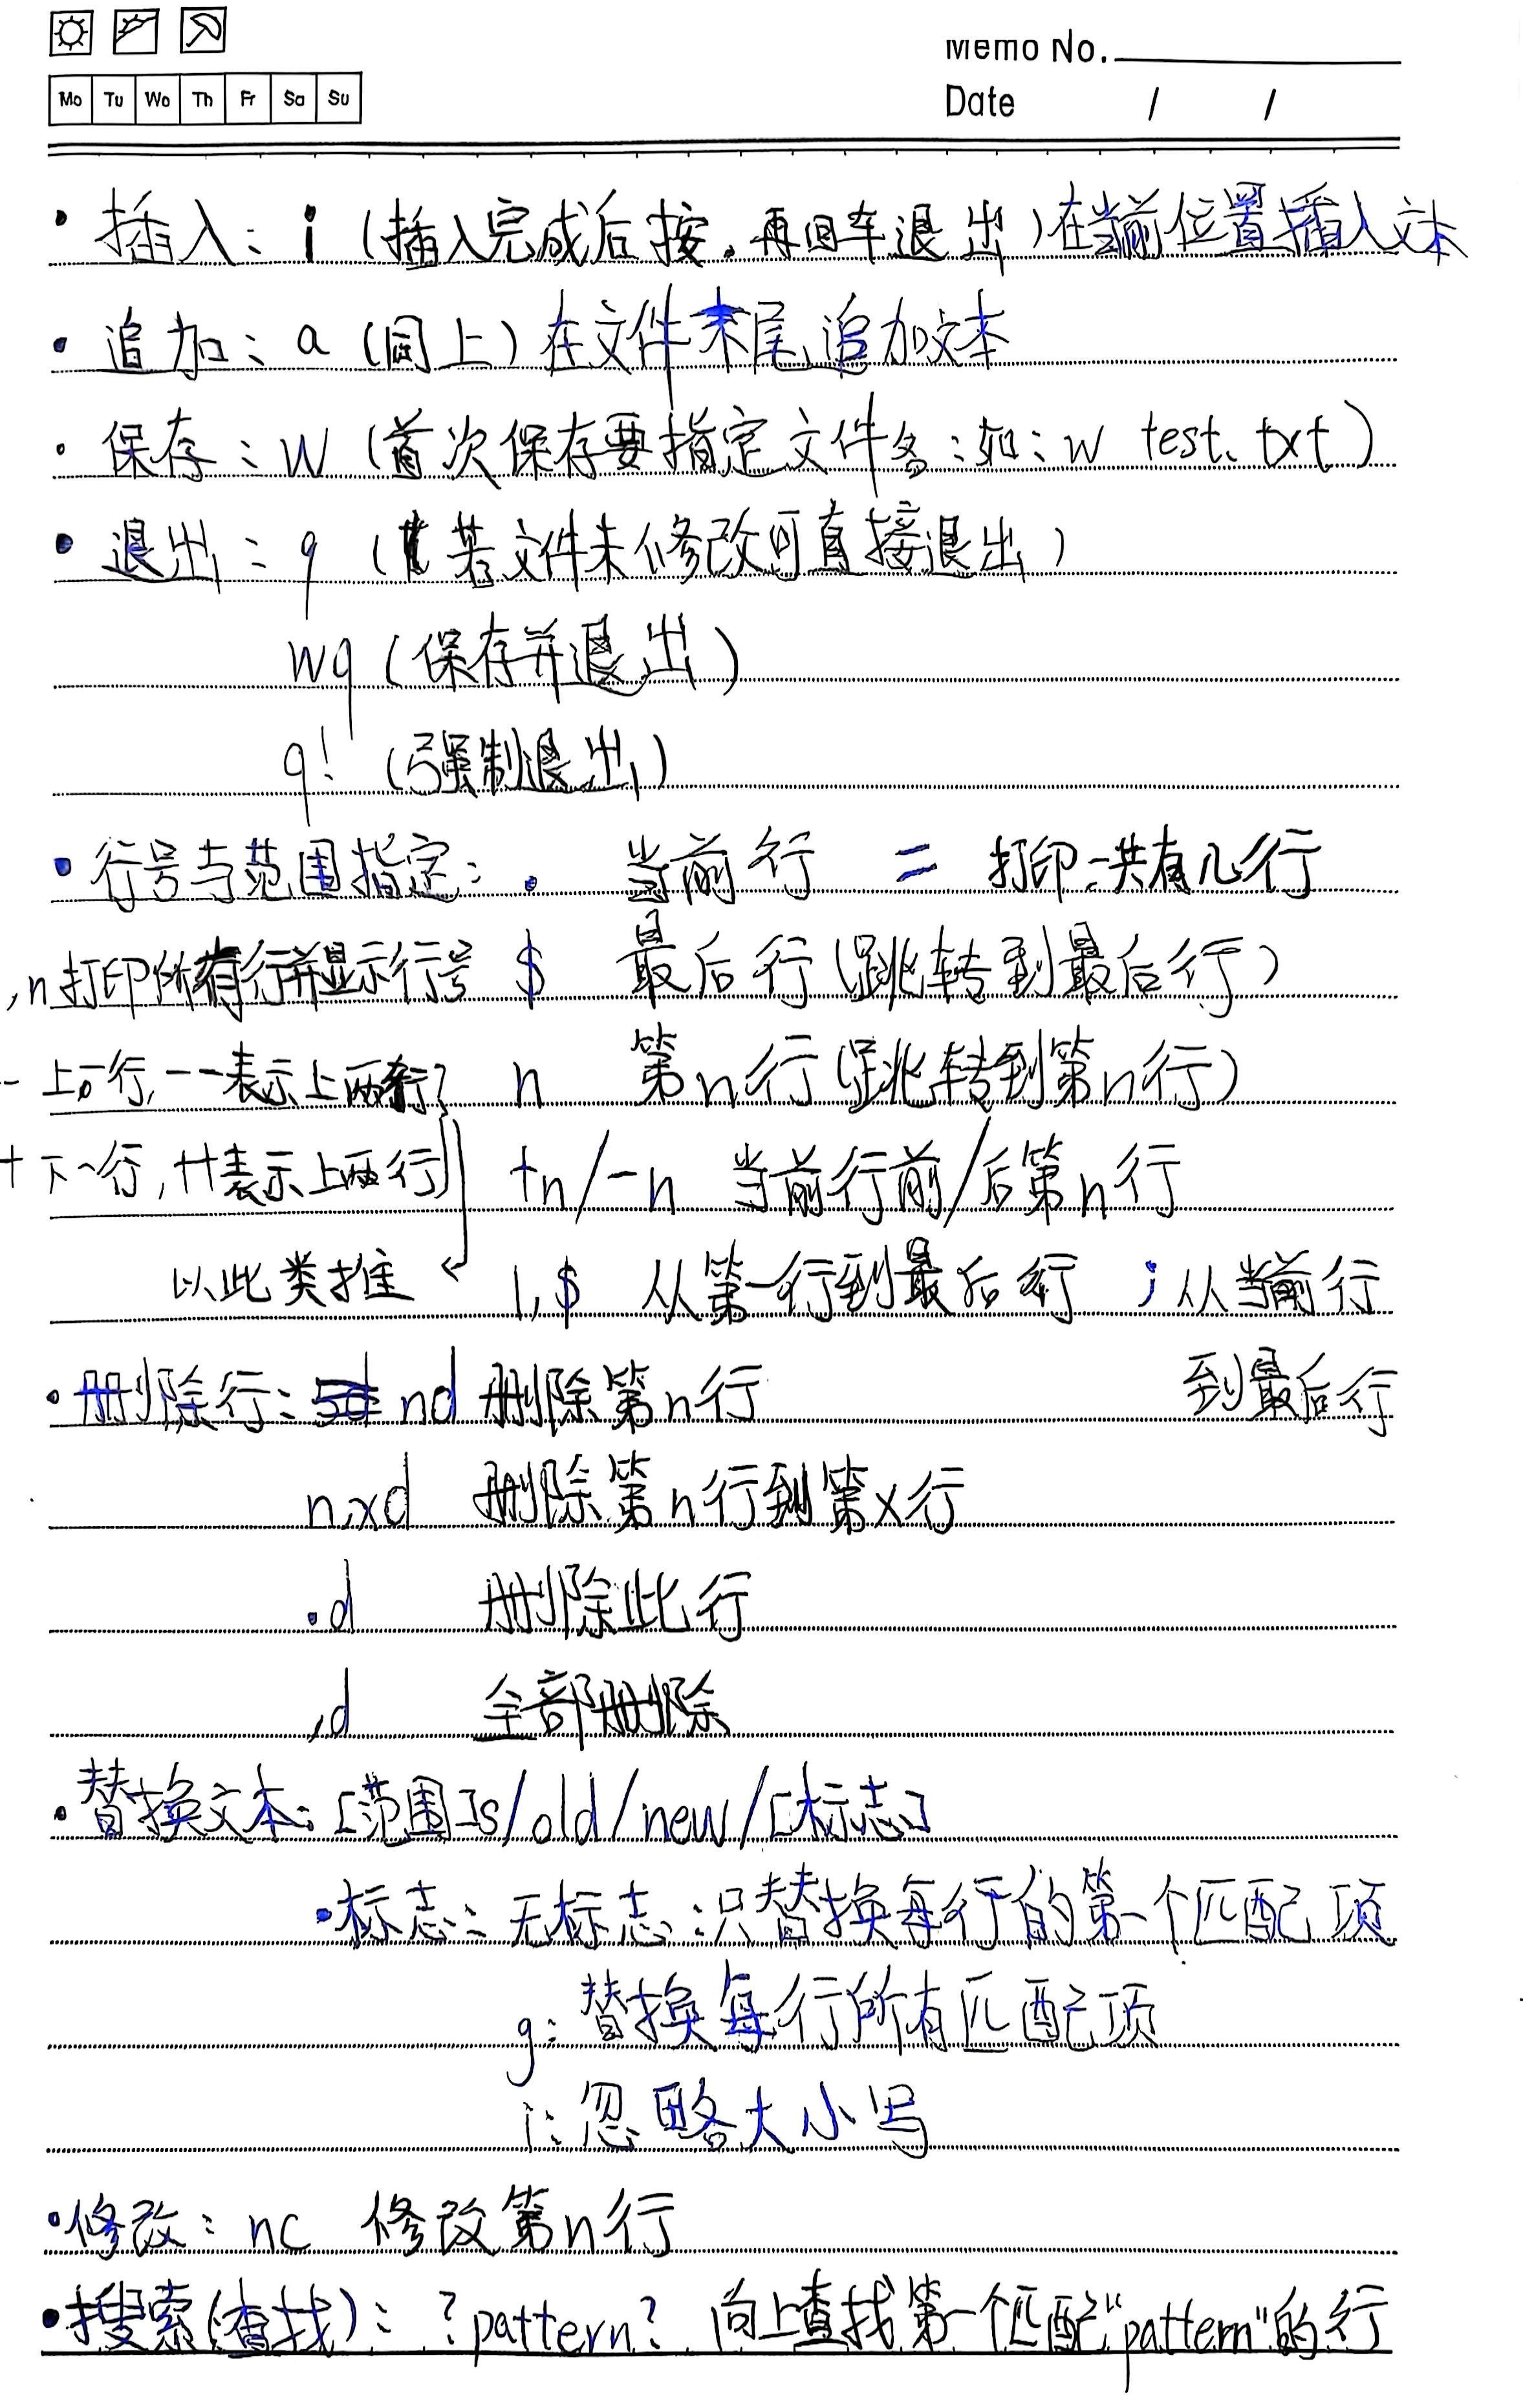 Memo No.
Mo Tu We Th Fr Sa Su
Date / /
• 插入: i (插入完成后按.再回车退出)在当前位置插入文本
• 追加: a (同上)在文件末尾追加文本
• 保存: w (首次保存要指定文件名:如: w test.txt)
• 退出: q (若文件未修改可直接退出)
wq (保存并退出)
q! (强制退出)
• 行号与范围指定: . 当前行 = 打印一共有几行
,n打印所有行并显示行号 $ 最后行(跳转到最后行)
- 上一行, --表示上两行 n 第n行(跳转到第n行)
+ 下一行, ++表示上两行 +n/-n 当前行前/后第n行
以此类推 1,$ 从第一行到最后行 ; 从当前行
到最后行
• 删除行: nd 删除第n行
n,xd 删除第n行到第x行
.d 删除此行
,d 全部删除
• 替换文本: [范围]s/old/new/[标志]
• 标志: 无标志:只替换每行的第一个匹配项
g: 替换每行所有匹配项
i: 忽略大小写
• 修改: nc 修改第n行
• 搜索(查找): ?pattern? 向上查找第一个匹配"pattern"的行